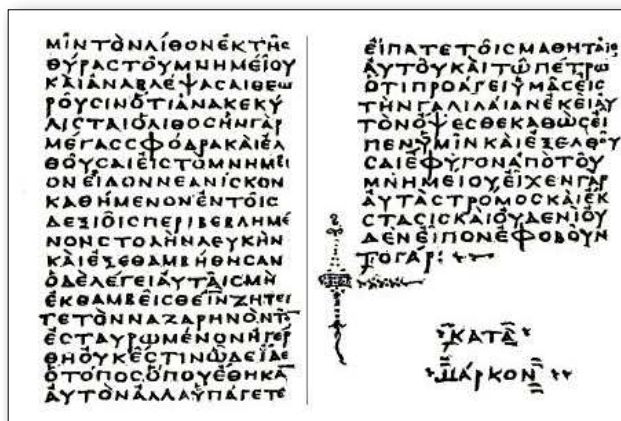 ΜΙΝΤΟΝΛΙΘΟΝΕΚΤΗϹ
ΘΥΡΑϹΤΟΥΜΝΗΜΕΙΟΥ
ΚΑΙΑΝΑΒΛΕΨΑϹΑΙΘΕΩ
ΡΟΥϹΙΝΟΤΙΑΝΑΚΕΚΥ
ΛΙϹΤΑΙΟΛΙΘΟϹΗΝΓΑΡ
ΜΕΓΑϹϹΦΟΔΡΑΚΑΙΕΛ
ΘΟΥϹΑΙΕΙϹΤΟΜΝΗΜΕΙ
ΟΝΕΙΔΟΝΝΕΑΝΙϹΚΟΝ
ΚΑΘΗΜΕΝΟΝΕΝΤΟΙϹ
ΔΕΞΙΟΙϹΠΕΡΙΒΕΒΛΗΜΕ
ΝΟΝϹΤΟΛΗΝΛΕΥΚΗΝ
ΚΑΙΕΞΕΘΑΜΒΗΘΗϹΑΝ
ΟΔΕΛΕΓΕΙΑΥΤΑΙϹΜΗ
ΕΚΘΑΜΒΕΙϹΘΕΙΝΖΗΤΕΙ
ΤΕΤΟΝΝΑΖΑΡΗΝΟΝΤΟ̅
ΕϹΤΑΥΡΩΜΕΝΟΝΗΓΕΡ
ΘΗΟΥΚΕϹΤΙΝΩΔΕΙΔΕ
ΟΤΟΠΟϹΟΠΟΥΕΘΗΚΑ̅
ΑΥΤΟΝΑΛΛΑΥΠΑΓΕΤΕ
ΕΙΠΑΤΕΤΟΙϹΜΑΘΗΤΑΙϹ
ΑΥΤΟΥΚΑΙΤΩΠΕΤΡΩ
ΟΤΙΠΡΟΑΓΕΙΥΜΑϹΕΙϹ
ΤΗΝΓΑΛΙΛΑΙΑΝΕΚΕΙΑΥ
ΤΟΝΟΨΕϹΘΕΚΑΘΩϹΕΙ
ΠΕΝΥΜΙΝΚΑΙΕΞΕΛΘΟΥ
ϹΑΙΕΦΥΓΟΝΑΠΟΤΟΥ
ΜΝΗΜΕΙΟΥΕΙΧΕΝΓΑΡ
ΑΥΤΑϹΤΡΟΜΟϹΚΑΙΕΚ
ϹΤΑϹΙϹΚΑΙΟΥΔΕΝΙΟΥ
ΔΕΝΕΙΠΟΝΕΦΟΒΟΥΝ
ΤΟΓΑΡ:
ΚΑΤΑ
ΜΑΡΚΟΝ